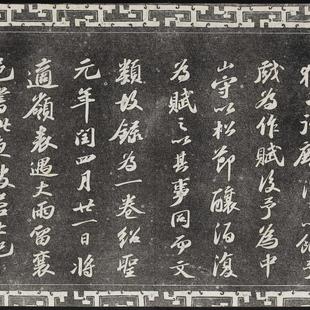 戲為作賦後予為中
山守以松節釀酒復
為賦之以其事同而文
類故錄為一卷紹聖
元年閏四月廿一日將
適嶺表遇大雨留襄